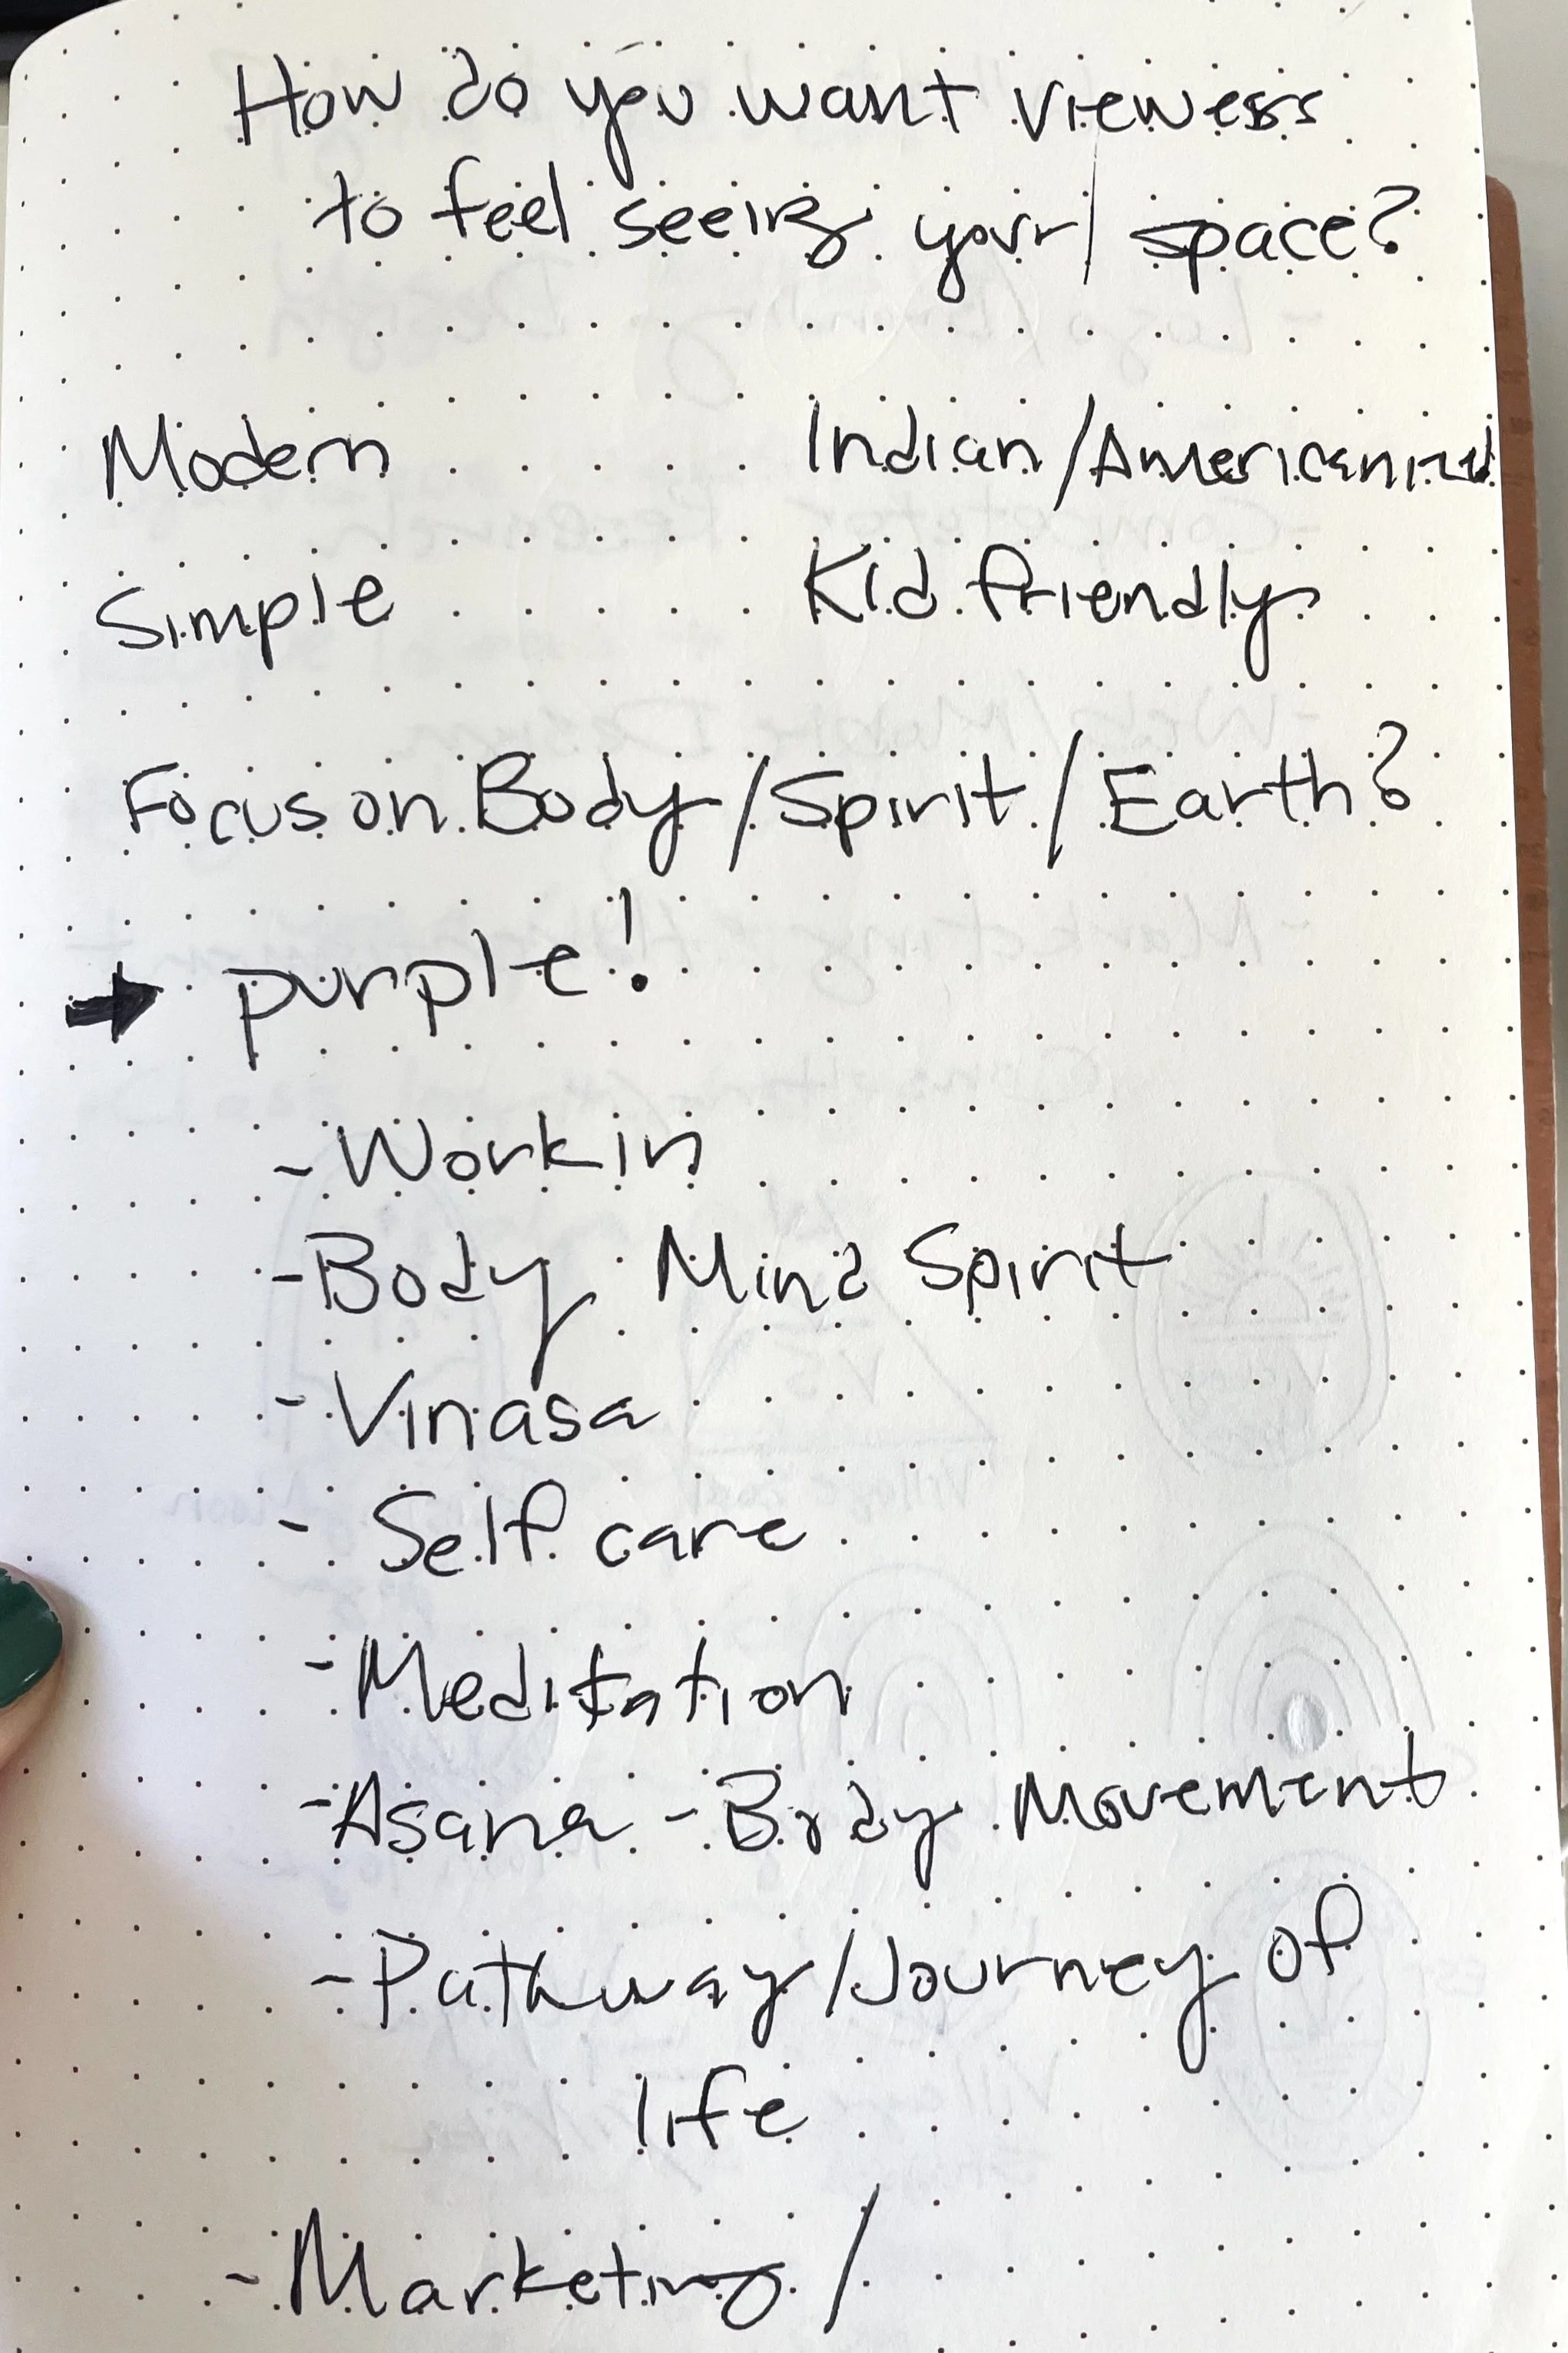 How do you want viewers
to feel seeing your/space?
Modern Indian/Americanized
Simple Kid friendly
Focus on Body/Spirit/Earth?
→ purple!
- Work in
- Body Mind Spirit
- Vinasa
- Self care
- Meditation
- Asana - Body Movement
- Pathway/Journey of
life
- Marketing/